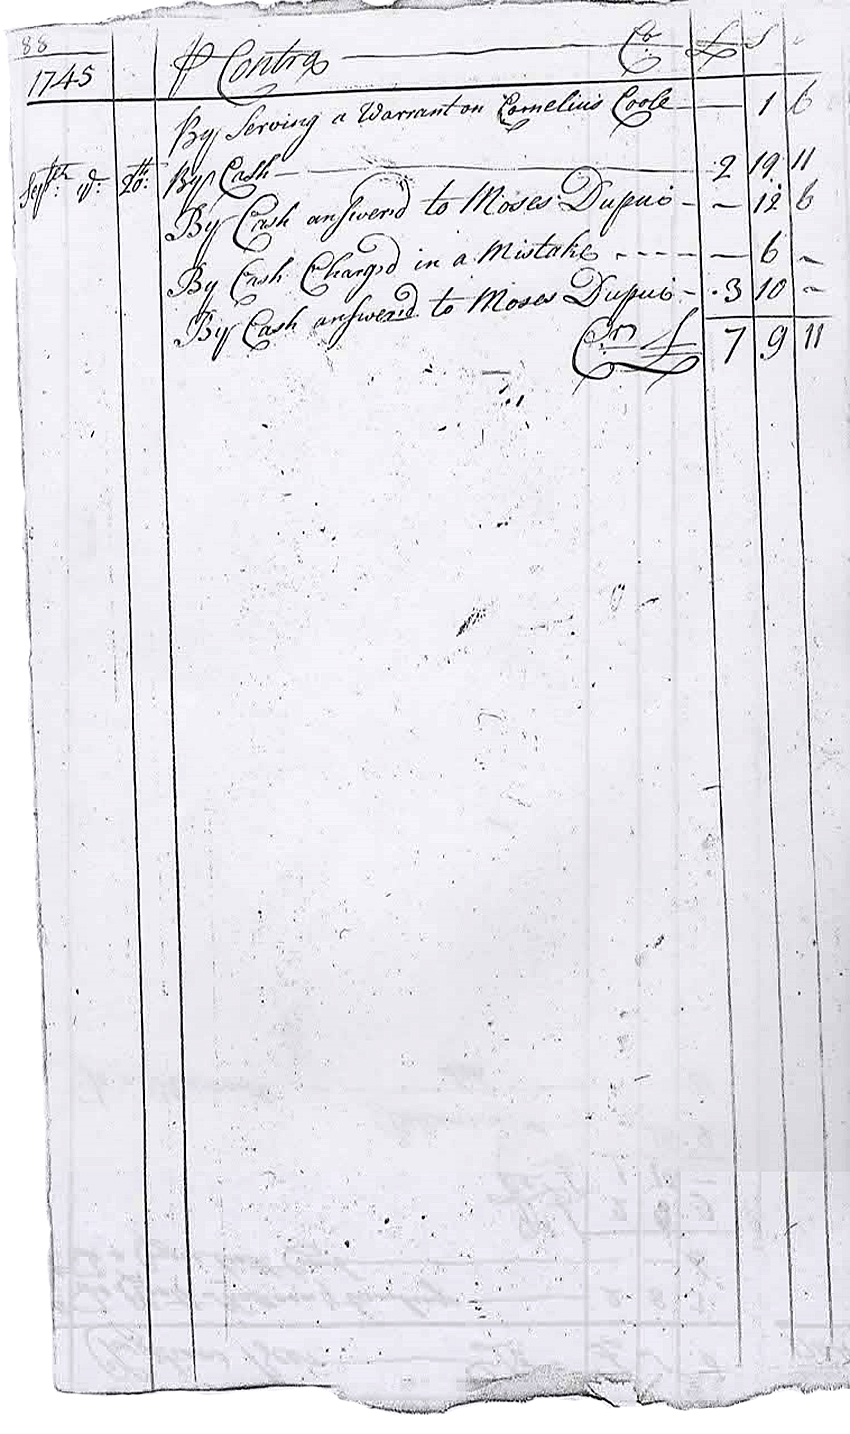 88
1745 ⅌ Contra Cr £ S
By Serving a Warrant on Cornelius Coole — 1 6
Septr ye 20th By Cash — 2 19 11
By Cash answer'd to Moses Dupui - - 12 6
By Cash Charg'd in a Mistake - - - - - 6 -
By Cash answered to Moses Dupui - 3 10 -
Errs £ 7 9 11